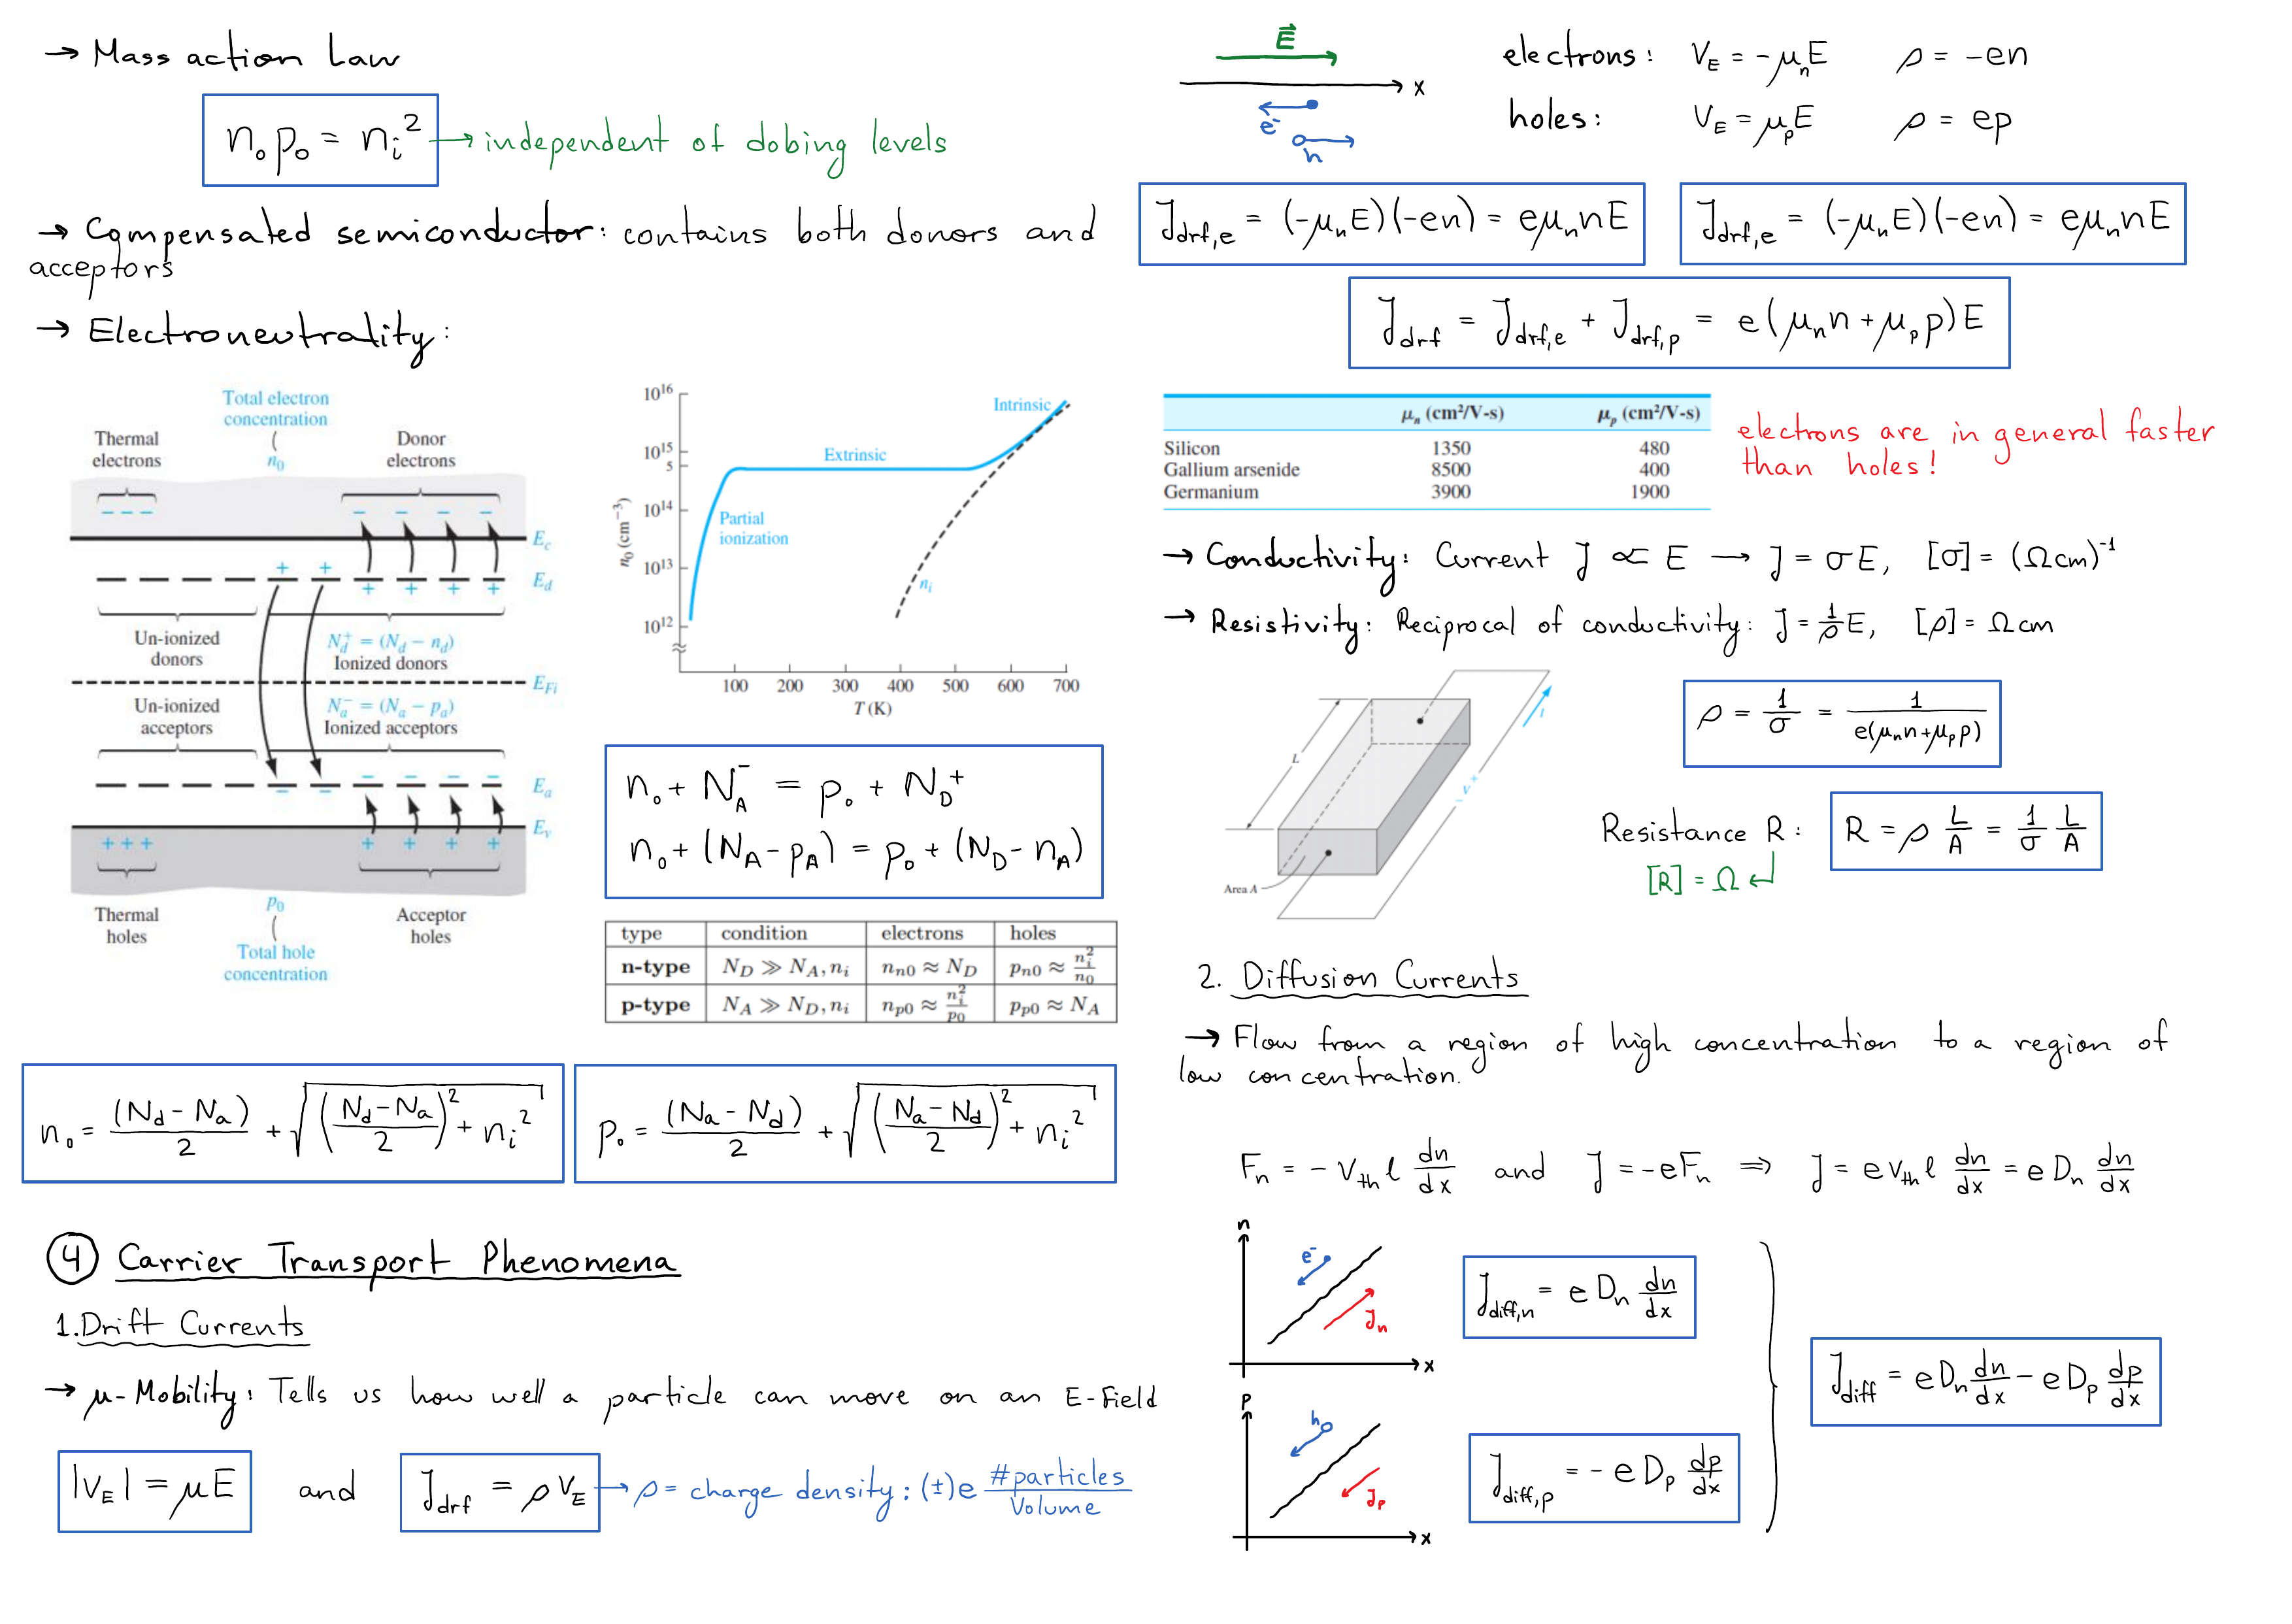 → Mass action Law
n₀p₀ = nᵢ² → independent of dobing levels
→ Compensated semiconductor: contains both donors and
acceptors
→ Electroneutrality:
Total electron
concentration
n₀
Thermal
electrons
Donor
electrons
E_c
E_d
Un-ionized
donors
N_d⁺ = (N_d − n_d)
Ionized donors
E_Fi
Un-ionized
acceptors
N_a⁻ = (N_a − p_a)
Ionized acceptors
E_a
E_v
Thermal
holes
p₀
Total hole
concentration
Acceptor
holes
n₀ (cm⁻³)
10¹⁶
10¹⁵
5
10¹⁴
10¹³
10¹²
Intrinsic
Extrinsic
Partial
ionization
nᵢ
100 200 300 400 500 600 700
T (K)
n₀ + N_A⁻ = p₀ + N_D⁺
n₀ + (N_A − p_A) = p₀ + (N_D − n_A)
type condition electrons holes
n-type N_D ≫ N_A, nᵢ n_n0 ≈ N_D p_n0 ≈ nᵢ²/n₀
p-type N_A ≫ N_D, nᵢ n_p0 ≈ nᵢ²/p₀ p_p0 ≈ N_A
n₀ = (N_d − N_a)/2 + √((N_d − N_a)/2)² + nᵢ²
p₀ = (N_a − N_d)/2 + √((N_a − N_d)/2)² + nᵢ²
④ Carrier Transport Phenomena
1. Drift Currents
→ μ-Mobility: Tells us how well a particle can move on an E-Field
|v_E| = μE and J_drf = ρv_E → ρ = charge density: (±)e #particles/Volume
E⃗
x
e⁻
h
electrons: v_E = −μₙE ρ = −en
holes: v_E = μ_pE ρ = ep
J_drf,e = (−μₙE)(−en) = eμₙnE
J_drf,e = (−μₙE)(−en) = eμₙnE
J_drf = J_drf,e + J_drf,p = e(μₙn + μ_pp)E
μₙ (cm²/V-s) μ_p (cm²/V-s)
Silicon 1350 480
Gallium arsenide 8500 400
Germanium 3900 1900
electrons are in general faster
than holes!
→ Conductivity: Current J ∝ E → J = σE, [σ] = (Ωcm)⁻¹
→ Resistivity: Reciprocal of conductivity: J = 1/ρ E, [ρ] = Ωcm
L
I
− V +
Area A
ρ = 1/σ = 1/e(μₙn+μ_pp)
Resistance R: R = ρ L/A = 1/σ L/A
[R] = Ω ↵
2. Diffusion Currents
→ Flow from a region of high concentration to a region of
low concentration.
Fₙ = − v_th l dn/dx and J = −eFₙ ⇒ J = e v_th l dn/dx = e Dₙ dn/dx
n
e⁻
Jₙ
x
J_diff,n = e Dₙ dn/dx
p
h
J_p
x
J_diff,p = − e D_p dp/dx
J_diff = e Dₙ dn/dx − e D_p dp/dx